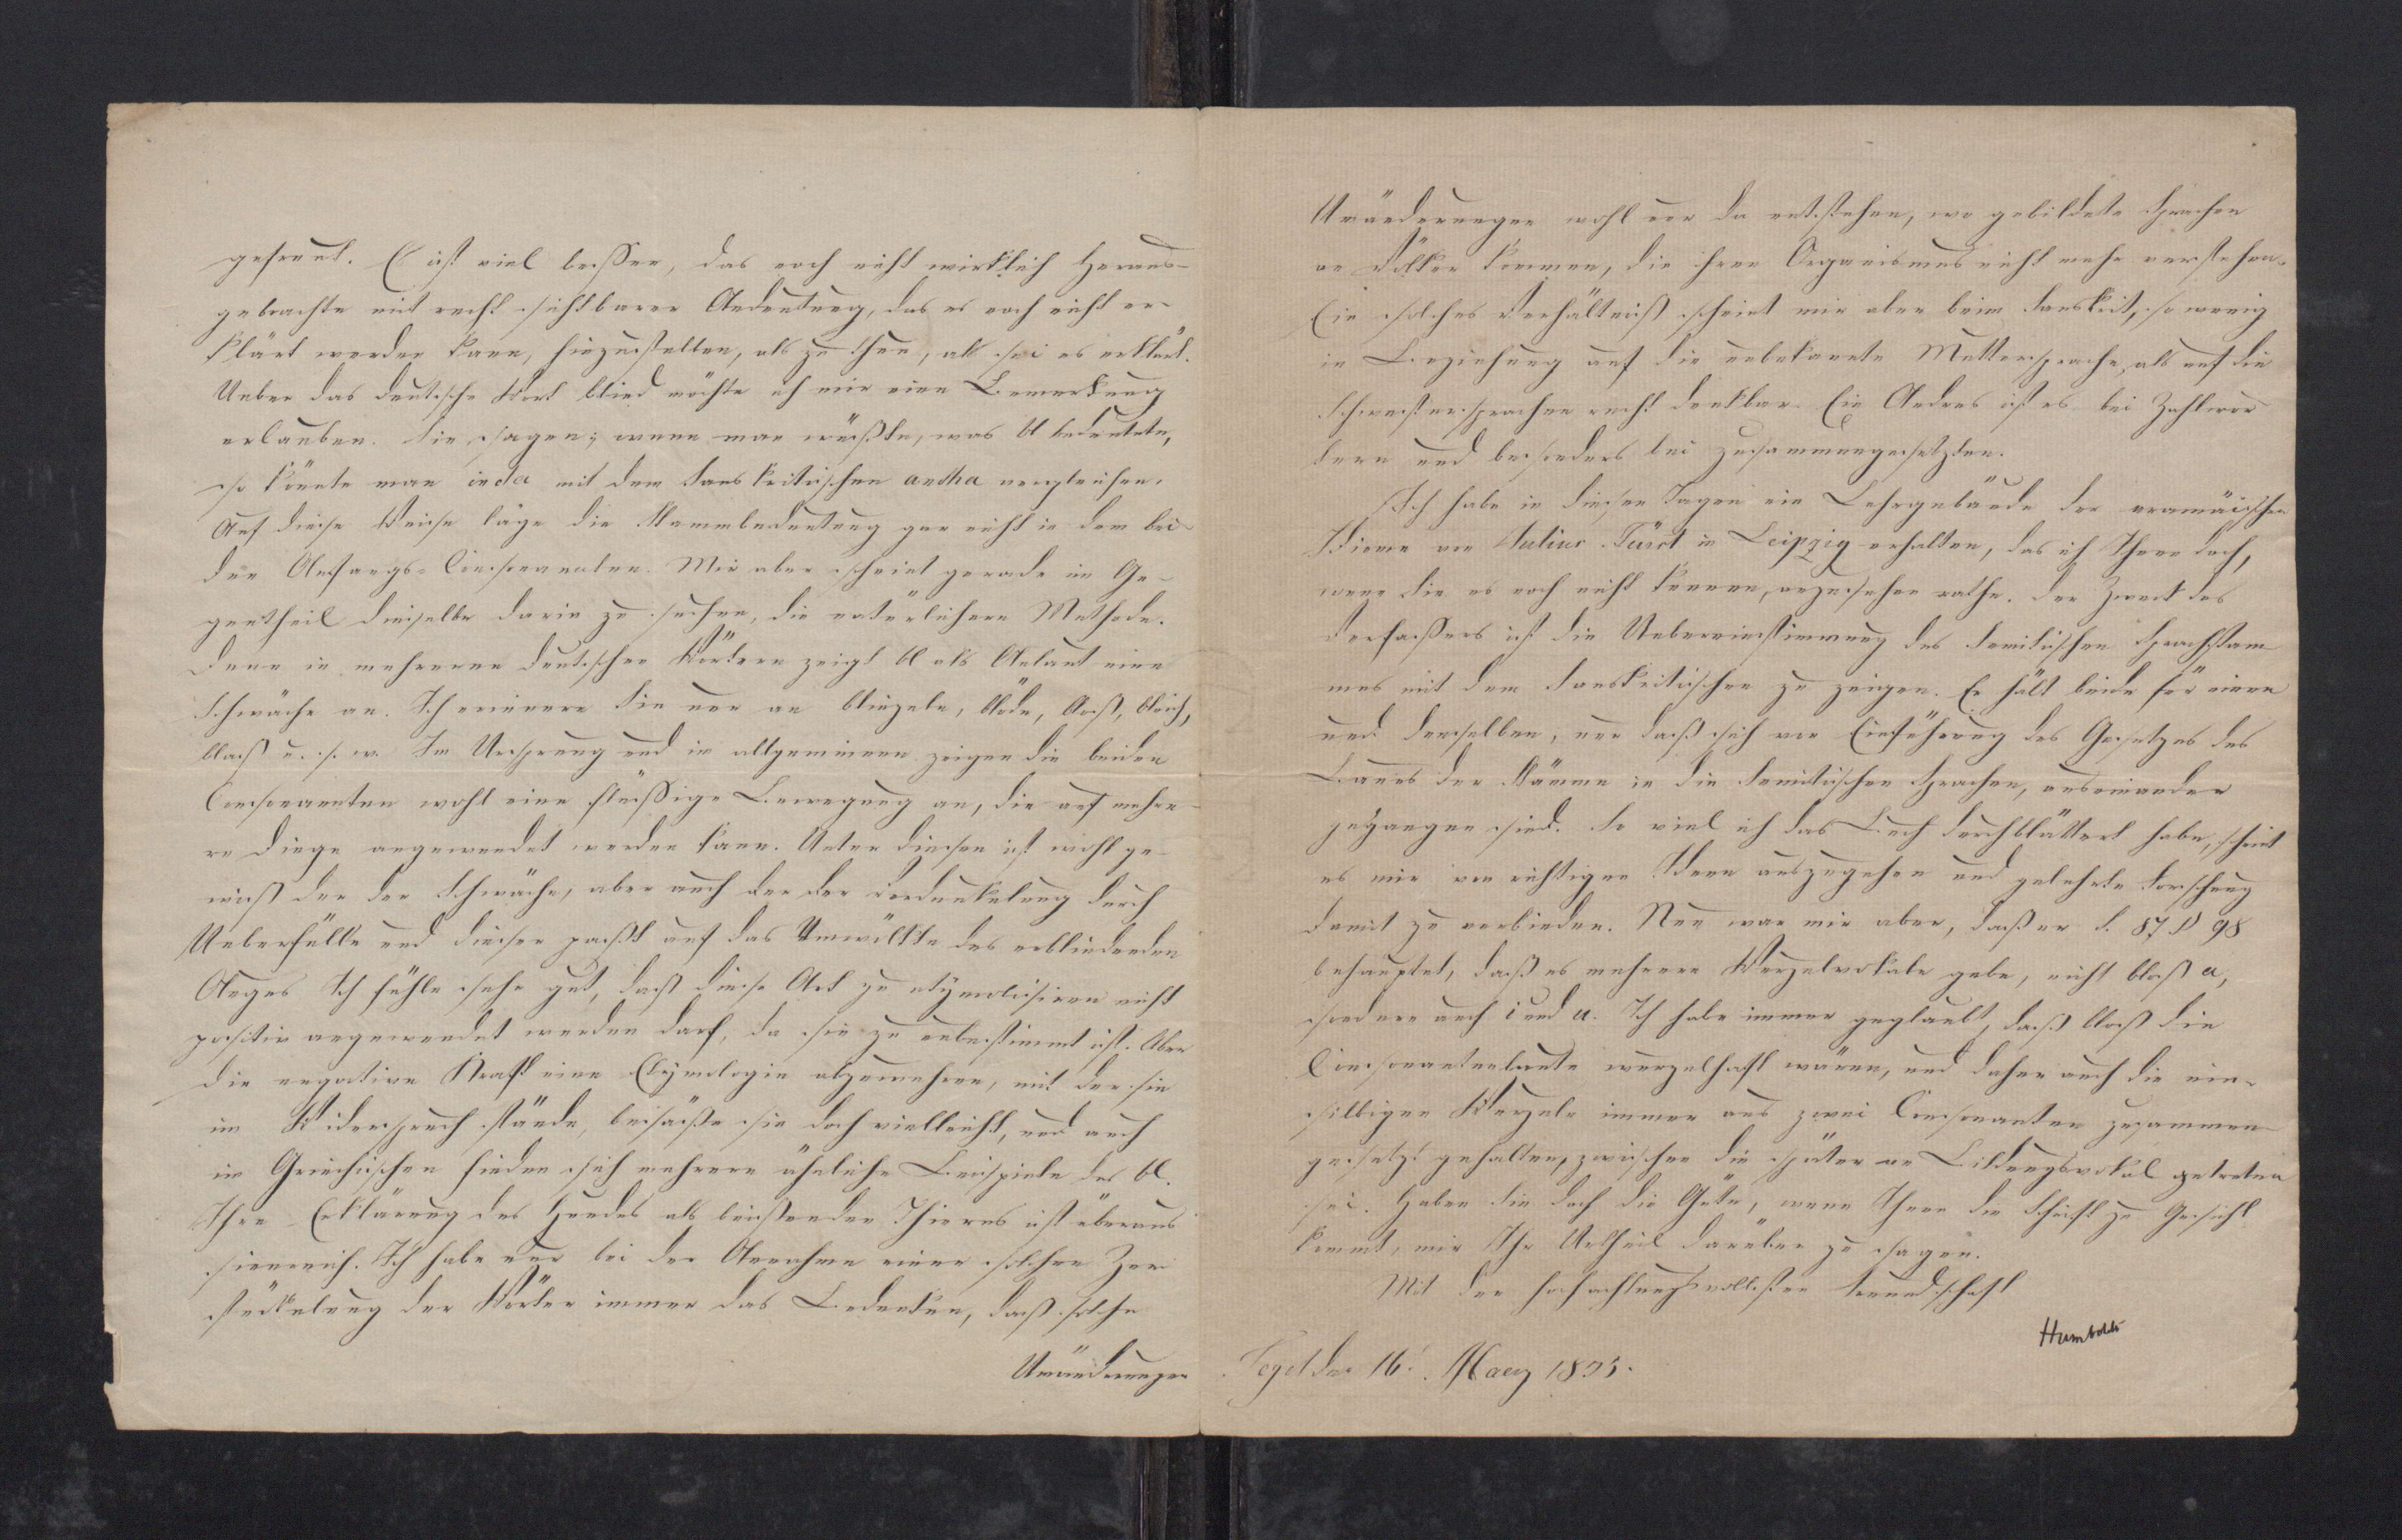 gefreut. Es ist viel besser, das noch nicht wirklich Heraus-
gebrachte mit recht sichtbarer Andeutung, das es noch nicht er-
klärt werden kann, hinzustellen, als zu thun, als sei es erklärt.
Ueber das deutsche Wort blind möchte ich mir eine Bemerkung
erlauben. Sie sagen; wenn man wüßte, was bl bedeutete,
so könnte man inda mit dem Sanskritischen andha vergleichen.
Auf diese Weise läge die Stammbedeutung gar nicht in dem bei-
den Anfangs-Consonanten. Mir aber scheint gerade im Ge-
gentheil dieselbe darin zu suchen, die natürlichere Methode.
Denn in mehreren deutschen Wörtern zeigt bl als Anlaut eine
Schwäche an. Ich erinnere Sie nur an blinzeln, blöde, bloß, bleich,
blaß u. s. w. Im Ursprung und im allgemeinen zeigen die beiden
Consonanten wohl eine flüssige Bewegung an, die auf mehre-
re Dinge angewendet werden kann. Unter diesen ist nicht ge-
wiß der der Schwäche, aber auch der der Verdunkelung durch
Ueberfülle und dieser paßt auf das Umwölkte des erblindenden
Auges Ich fühle sehr gut, daß diese Art zu etymolisiren nicht
positiv angewendet werden darf, da sie zu unbestimmt ist. Aber
die negative Kraft eine Etymologie abzuwehren, mit der sie
im Widerspruch stände, besäße sie doch vielleicht, und auch
im Griechischen finden sich mehrere ähnliche Beispiele des bl.
Ihre Erklärung des Hundes als beißenden Thieres ist überaus
sinnreich. Ich habe nur bei der Annahme einer solchen Zer-
stückelung der Wörter immer das Bedenken, daß solche
Umänderungen
Umänderungen wohl nur da entstehen, wo gebildete Sprachen
an Völker kommen, die ihren Organismus nicht mehr verstehen.
Ein solches Verhältniß scheint mir aber beim Sanskrit, so wenig
in Beziehung auf die unbekannte Muttersprache, als auf die
Schwestersprachen recht denkbar. Ein Andres ist es bei Zahlwör
tern und besonders bei zusammengesetzten.
Ich habe in diesen Tagen ein Lehrgebäude der aramäischen
Idiome von Julius Fürst in Leipzig erhalten, das ich Ihnen doch,
wenn Sie es noch nicht kennen, anzusehen rathe. Der Zweck des
Verfassers ist die Uebereinstimmung des Semitischen Sprachstam
mes mit dem Sanskritischen zu zeigen. Er hält beide für einen
und denselben, nur daß sich vor Einführung des Gesetzes des
Baues der Stämme in die Semitischen Sprachen, auseinander
gegangen sind. So viel ich das Buch durchblättert habe, scheint
es mir von richtigen Ideen auszugehen und gelehrte Forschung
damit zu verbinden. Neu war mir aber, daß er S. 87 § 98
behauptet, daß es mehrere Wurzelvokale gebe, nicht bloß a,
sondern auch i und u. Ich habe immer geglaubt, daß bloß die
Consonantenlaute wurzelhaft wären, und daher auch die ein-
silbigen Wurzeln immer aus zwei Consonanten zusammen
gesetzt gehalten, zwischen die später ein Bildungsvokal getreten
sei. Haben Sie doch die Güte, wenn Ihnen die Schrift zu Gesicht
kommt, mir Ihr Urtheil darüber zu sagen.
Mit der hochachtungsvollsten Freundschaft
Humboldt
Tegel den 16. Maerz 1835.